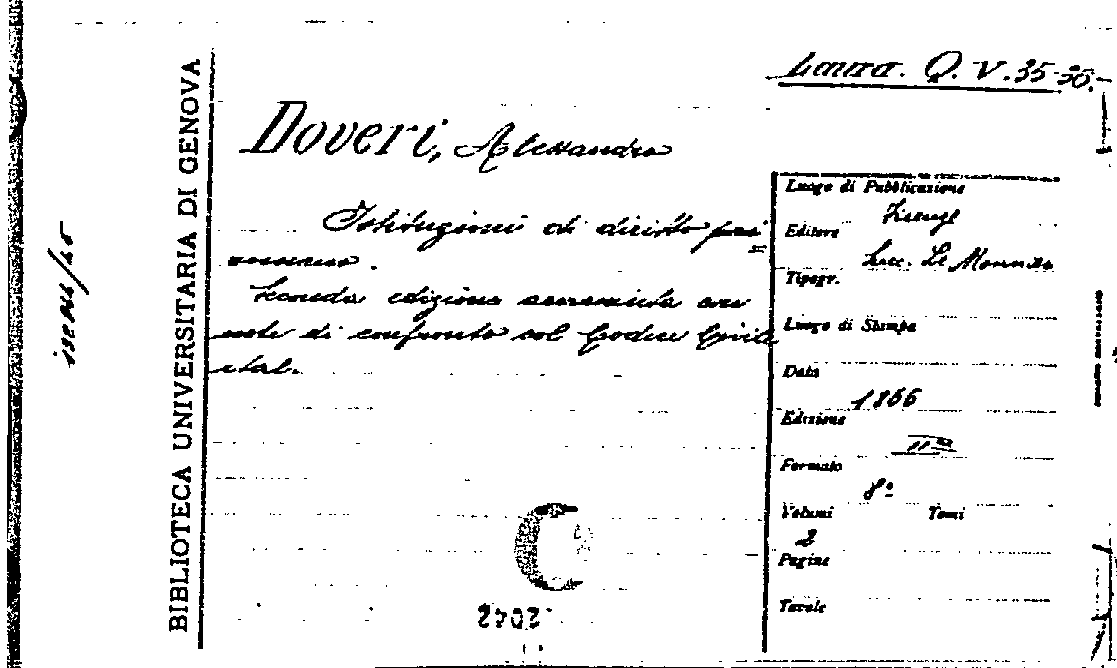 Laura. Q. V. 35-36.
BIBLIOTECA UNIVERSITARIA DI GENOVA
Doveri, Alessandro
Istituzioni di diritto
romano.
Seconda edizione accresciuta con
note di confronto col Codice Civile
ital.
Luogo di Pubblicazione
Firenze
Editore
Succ. Le Monnier
Tipogr.
Luogo di Stampa
Data
1866
Edizione
IIa
Formato
8º
Volumi Tomi
2
Pagine
Tavole
C